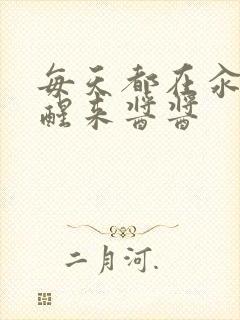 每天都在汆
醒来酱酱
二月河.